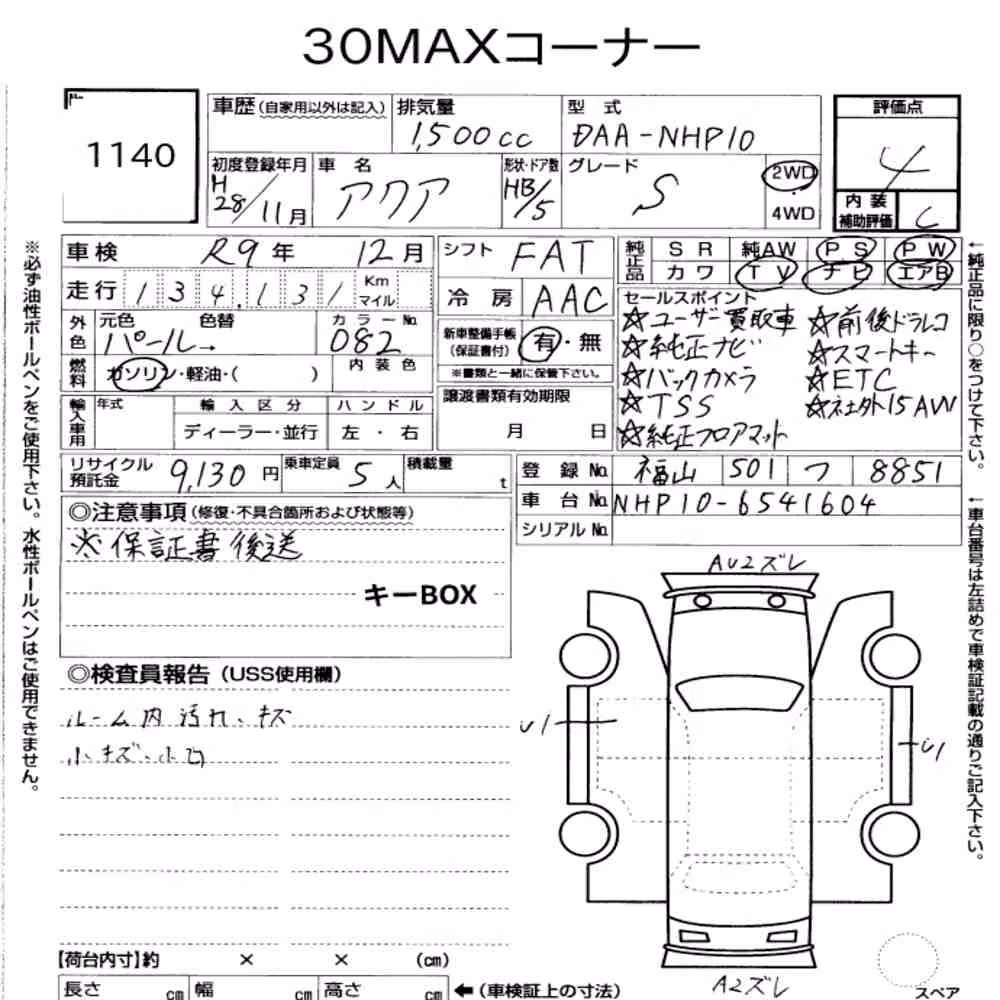 30MAXコーナー
1140
車歴 (自家用以外は記入) 排気量 1,500cc 型式 DAA-NHP10
初度登録年月 H28/11月 車名 アクア 形状・ドア数 HB/5 グレード S 2WD・4WD
評価点 4
内装補助評価 C
車検 R9年 12月
走行 134,131 Km マイル
外色 元色 パール→ 色替 カラーNo. 082
燃料 ガソリン・軽油・( ) 内装色
輸入車用 年式 輸入区分 ディーラー・並行 ハンドル 左・右
シフト FAT
冷房 AAC
新車整備手帳 (保証書付) 有・無
※書類と一緒に保管下さい。
譲渡書類有効期限
月 日
純正品 SR 純AW PS PW
カワ TV ナビ エアB
セールスポイント
☆ユーザー買取車 ☆前後ドラレコ
☆純正ナビ ☆スマートキー
☆バックカメラ ☆ETC
☆TSS ☆社外15AW
☆純正フロアマット
リサイクル預託金 9,130円 乗車定員 5人 積載量 t
登録No. 福山 501 つ 8851
車台No. NHP10-6541604
シリアルNo.
◎注意事項 (修復・不具合箇所および状態等)
※保証書後送
キーBOX
◎検査員報告 (USS使用欄)
ルーム内汚れ、キズ
小キズ、小凹
AU2ズレ
U1
U1
A2ズレ
スペア
【荷台内寸】約 × × (cm)
長さ cm 幅 cm 高さ cm ←(車検証上の寸法)
※必ず油性ボールペンをご使用下さい。水性ボールペンはご使用できません。
←純正品に限り○をつけて下さい。
←車台番号は左詰めで車検証記載の通りご記入下さい。